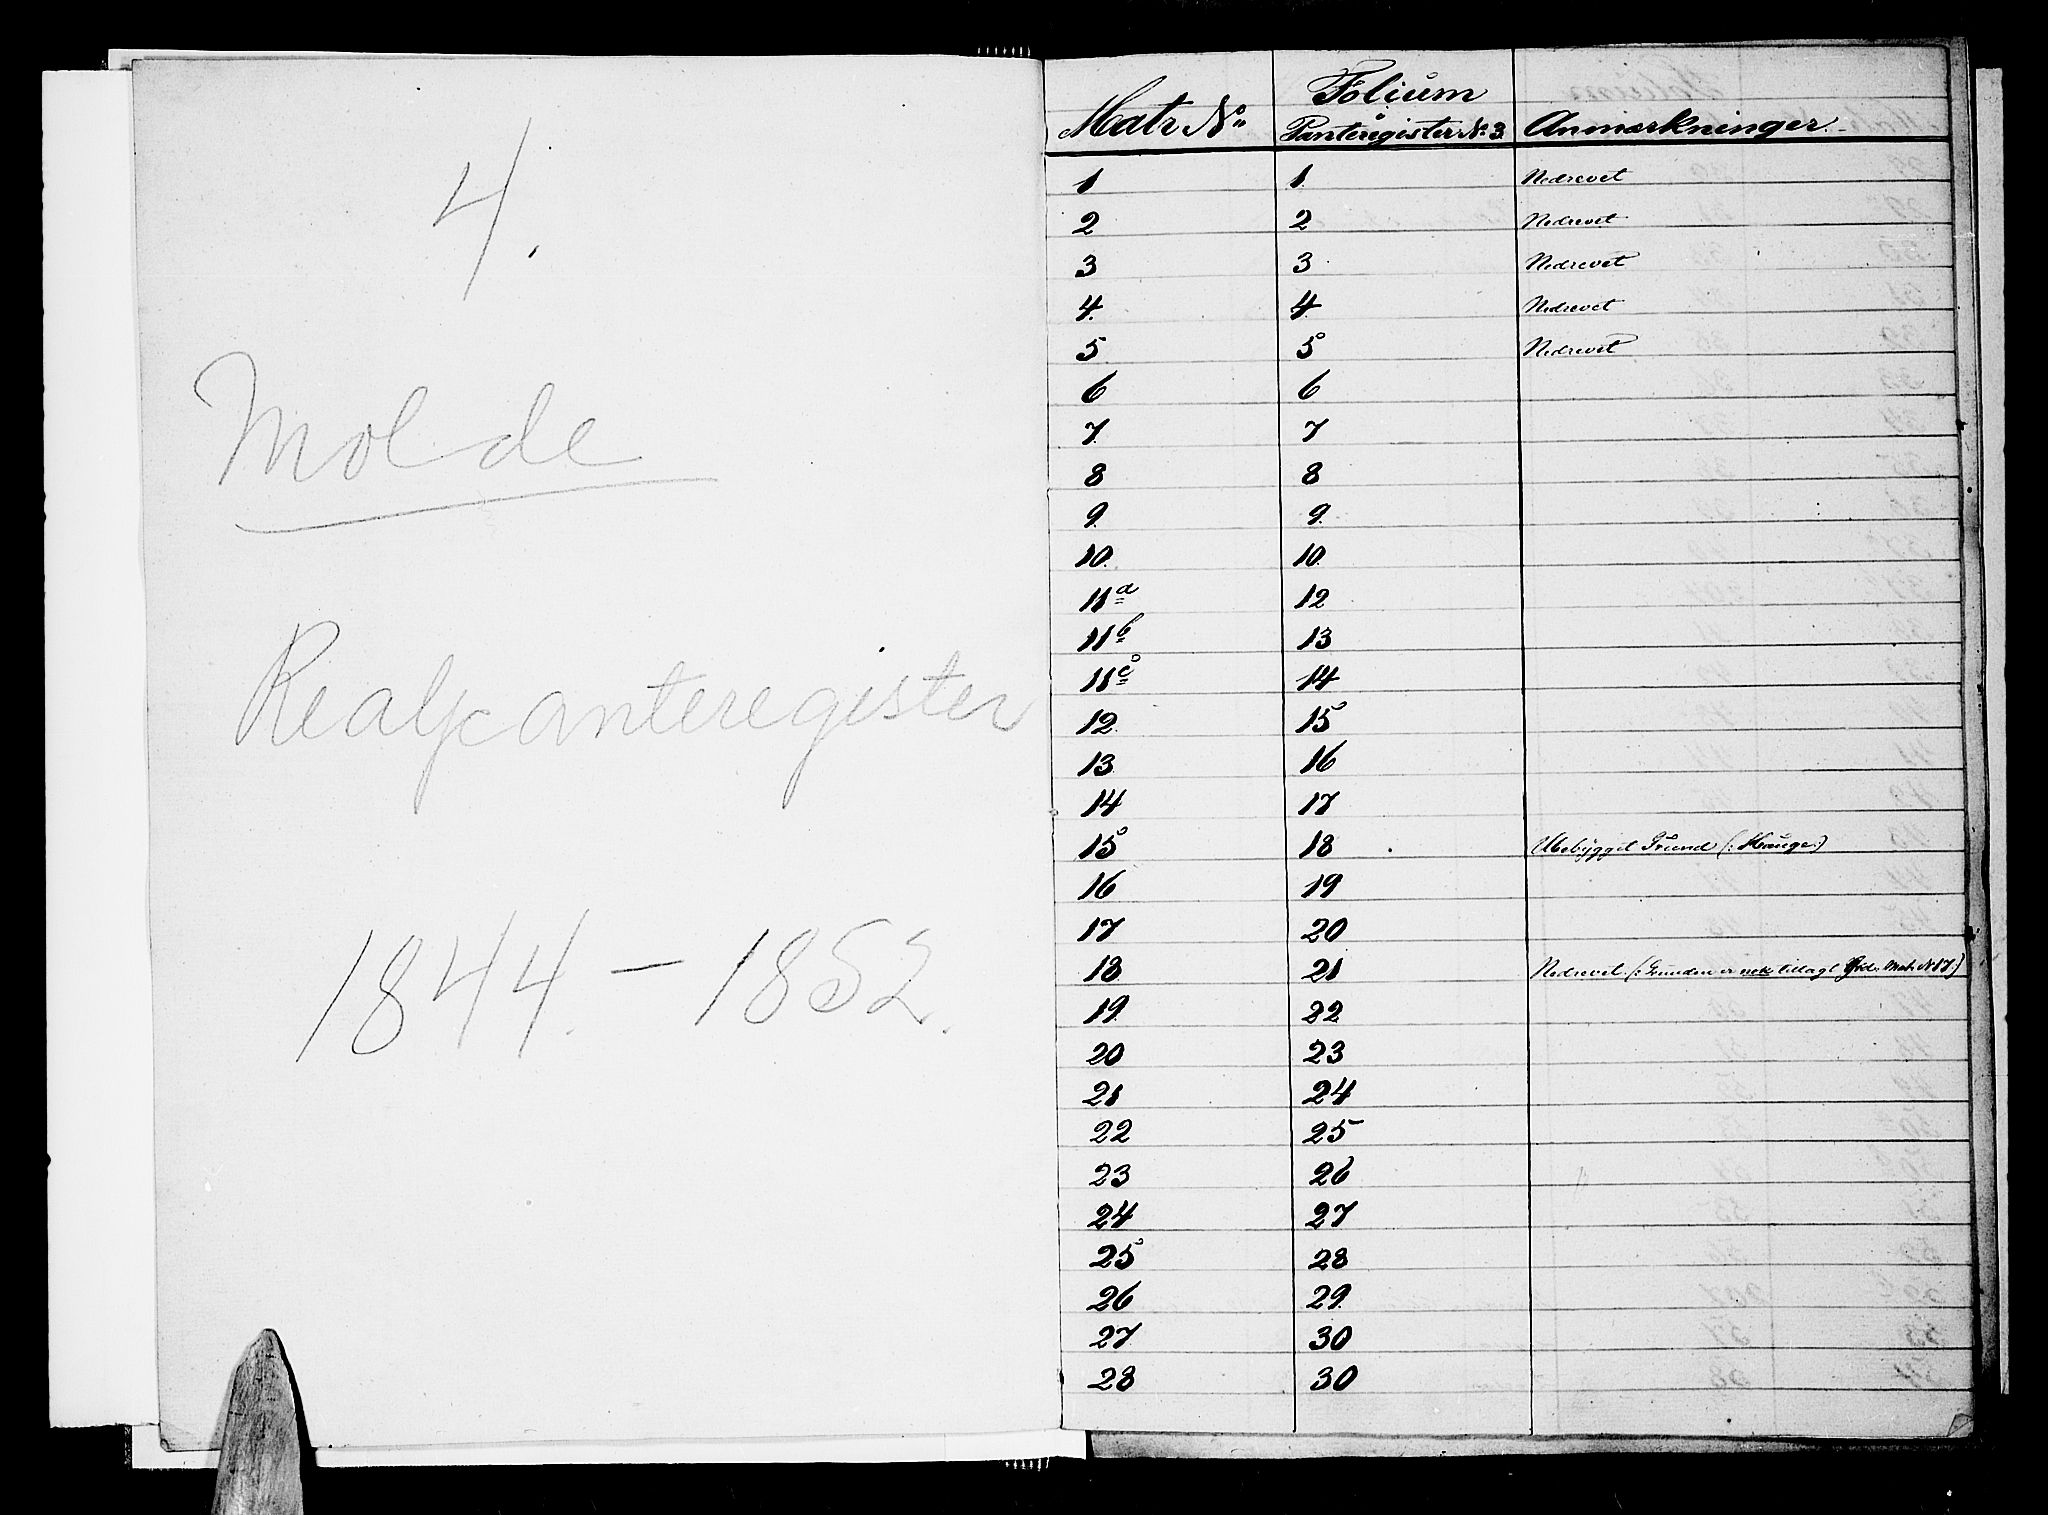 4.
Molde
Realpanteregister
1844. – 1852.
Matr No Folium Panteregister No 3 Anmærkninger.
1 1. Nedrevet
2 2 Nedrevet
3 3 Nedrevet
4. 4. Nedrevet
5 5 Nedrevet
6 6
7. 7
8 8
9. 9.
10. 10.
11a 12
11b 13
11c 14
12. 15
13 16
14 17
15 18 Ubebygget Grund (: Hauge:)
16 19
17 20
18 21 Nedrevet. (: Grunden er tillagt Matr. No 17:)
19. 22
20 23
21 24
22 25
23 26
24 27
25 28
26 29.
27 30
28 30